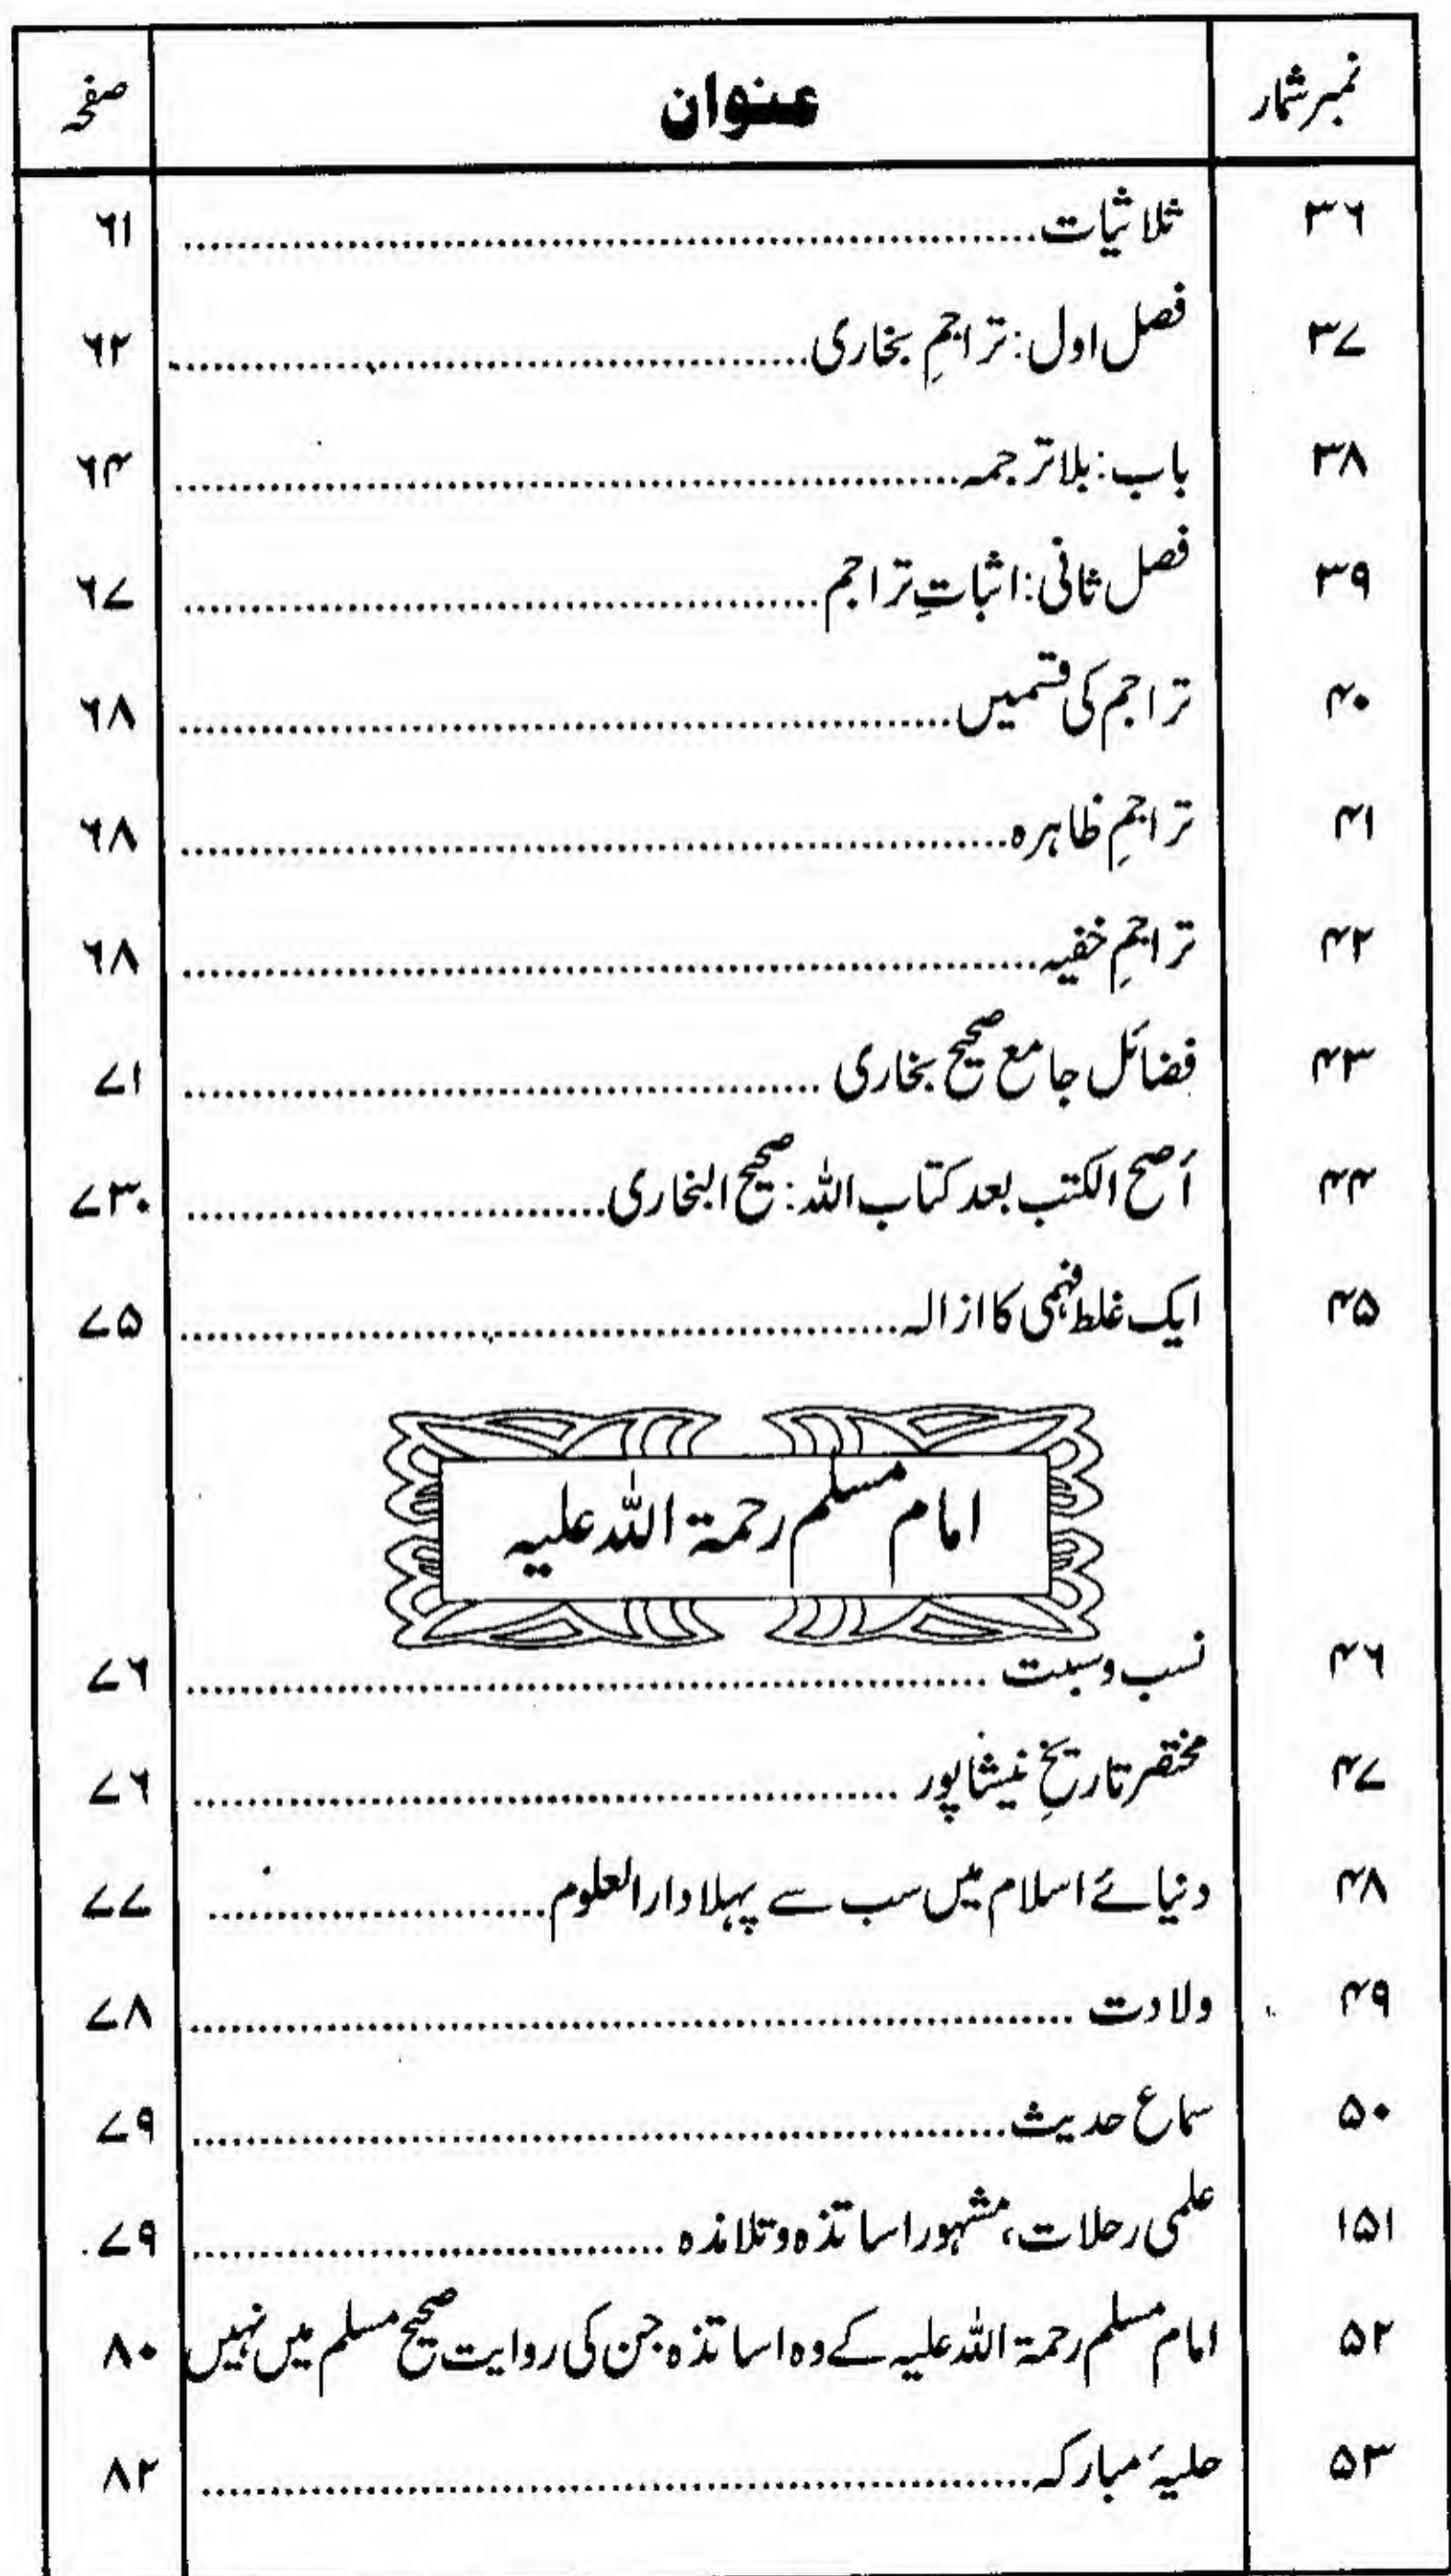 نمبر شمار عنوان صفحہ
۳۶ ثلاثیات ۶۱
۳۷ فصل اول: تراجمِ بخاری ۶۲
۳۸ باب: بلا ترجمہ ۶۴
۳۹ فصل ثانی: اثباتِ تراجم ۶۷
۴۰ تراجم کی قسمیں ۶۸
۴۱ تراجمِ ظاہرہ ۶۸
۴۲ تراجمِ خفیہ ۶۸
۴۳ فضائل جامع صحیح بخاری ۷۱
۴۴ أصح الکتب بعد کتاب اللہ: صحیح البخاری ۷۳۰
۴۵ ایک غلط فہمی کا ازالہ ۷۵
امام مسلم رحمۃ اللہ علیہ
۴۶ نسب وسبت ۷۶
۴۷ مختصر تاریخِ نیشاپور ۷۶
۴۸ دنیائے اسلام میں سب سے پہلا دارالعلوم ۷۷
۴۹ ولادت ۷۸
۵۰ سماع حدیث ۷۹
۱۵۱ علمی رحلات، مشہور اساتذہ وتلامذہ ۷۹
۵۲ امام مسلم رحمۃ اللہ علیہ کے وہ اساتذہ جن کی روایت صحیح مسلم میں نہیں ۸۰
۵۳ حلیۂ مبارکہ ۸۲